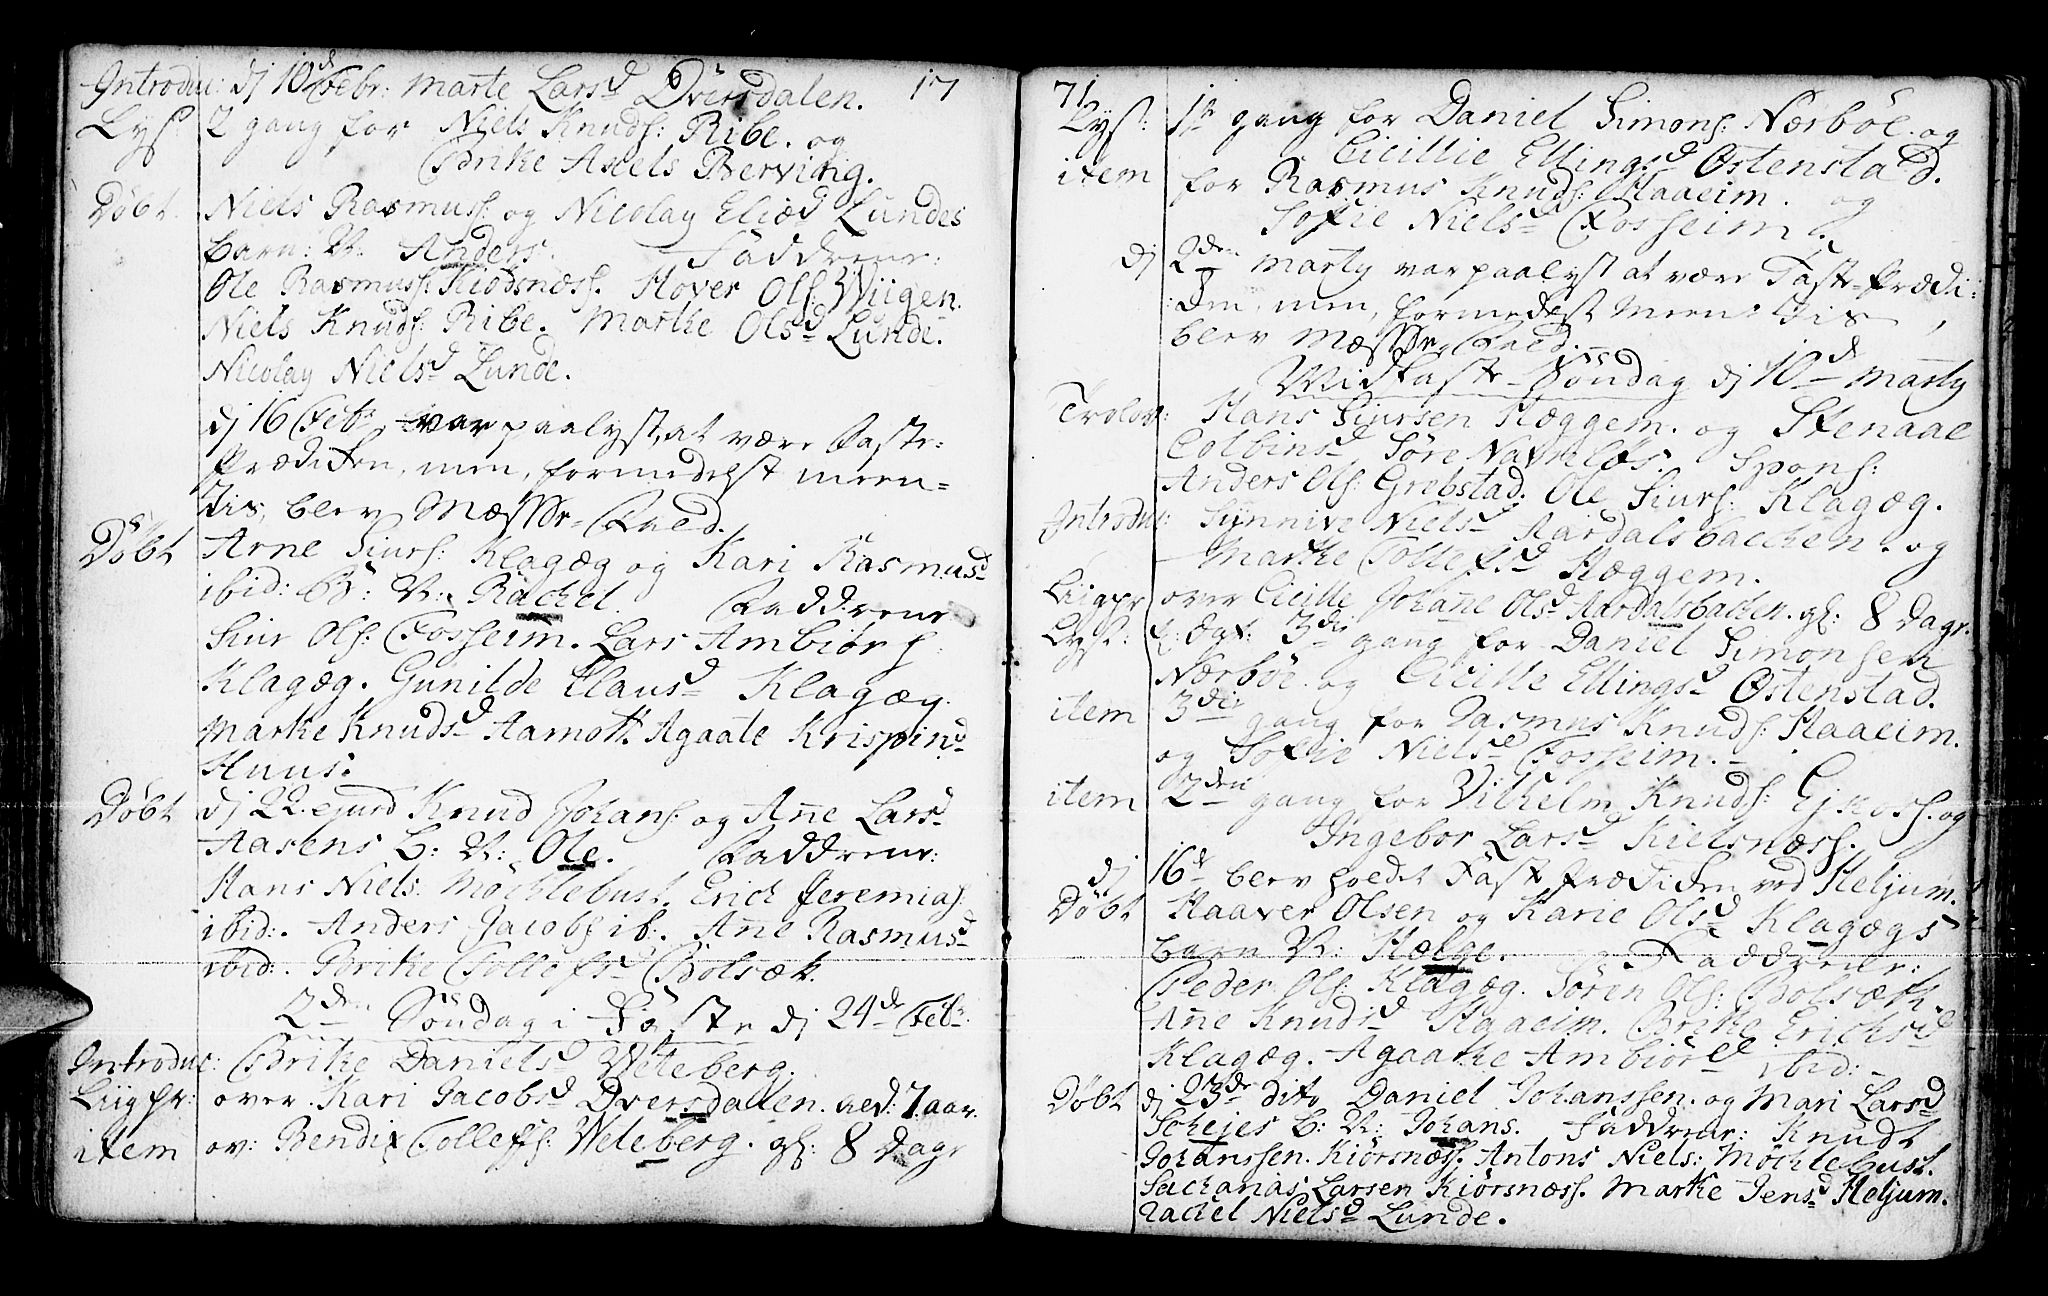 Introdu: dj 10d Febr: Marte Larsd Dversdalen. 17
Lys: 2 gang for Niels Knuds: Ribe. og
Brite Axels Berving.
Döbt Niels Rasmus: og Nicolay Eliæd Lundes
barn: N: Anders. Faddrene:
Ole Rasmuss: Kiödsnæss. Hover Ols: Wiigen.
Niels Knuds: Ribe. Marthe Olsd Lunde.
Nicolay Nielsd Lunde.
dj 16 Febr var paalyst, at være Faste-
Prædiken, men, formedelst meen-
Jis, blev Mæsse-Fald.
Döbt Arne Siurs: Klagæg og Kari Rasmusd
ibid: B: N: Rachel. Faddrene
Siur Ols: Fosseim. Lars Ambiörs:
Klagæg. Gunilde Clausd Klagæg.
Marthe Knudsd Aamott. Agaate Krispind
Huus.
Döbt dj 22. ejusd Knud Johans: og Añe Larsd
Aasens b: N: Ole. Faddrene:
Hans Niels: Möchlebust. Erich Jeremias:
ibid:. Anders Jacobs ib:. Añe Rasmusd
ibid:. Brite Tollefsd Bolsæt.
2den Söndag i Faste dj 24de Feb:
Introduc: Brite Danielsd Weteberg.
Liigpr: over Kari Jacobsd Dversdalen. æed: 7 aar.
item ov: Bendix Tollefs: Weteberg. gl: 8 Dage
71
Lys: 1te gang for Daniel Simons: Nærböe. og
Cicillie Ellingsd Östenstad.
item for Rasmus Knuds: Haaeim. og
Sofie Nielsd Fosseim.
dj 2den Marty var paalyst at være Faste-Prædi-
ken, men, formedelst Meen: Jis,
blev Mæsse-Fald.
Midfaste-Söndag dj 10d Marty
Trolov: Hans Siursen Hæggem. og Stenaae
Colbinsd Söre Navnlös. Spons:
Anders Ols: Grebstad. Ole Siurs: Klagæg.
Introduc: Sünnive Nielsd Aardalsbachen. og
Marthe Tollefsd Hæggem.
Liigpr over Cicille Johañe Olsd Aardalsbachen. gl: 8 Dage.
Lyst: 3die gang for Daniel Simonsen
Nærböe. og Cicille Ellingsd Östenstad.
item 3die gang for Rasmus Knuds: Haaeim.
og Sofie Nielsd Fosseim.
item 2den gang for Vilhelm Knuds: Ejkoss. og
Ingebor Larsd Kielsnæss.
dj 16de blev holdet Fasteprædiken ved Heljum.
Döbt Haaver Olsen og Karie Olsd Klagægs
barn N: Hælge. Faddrene:
Peder Ols: Klagæg. Sören Ols: Bolsæth.
Añe Knudsd Haaeim. Brite Erichsd
Klagæg. Agaathe Ambiörsd ibid:
Döbt dj 23de dito Daniel Johanssen. og Mari Larsd
Schejes b: N: Johans. Faddrene: Knudt
Johanssen. Kiörsnæss. Antons Niels: Möchlebust.
Sacharias Larsen Kiörsnæss. Marthe Jensd Heljum.
Rachel Nielsd Lunde.